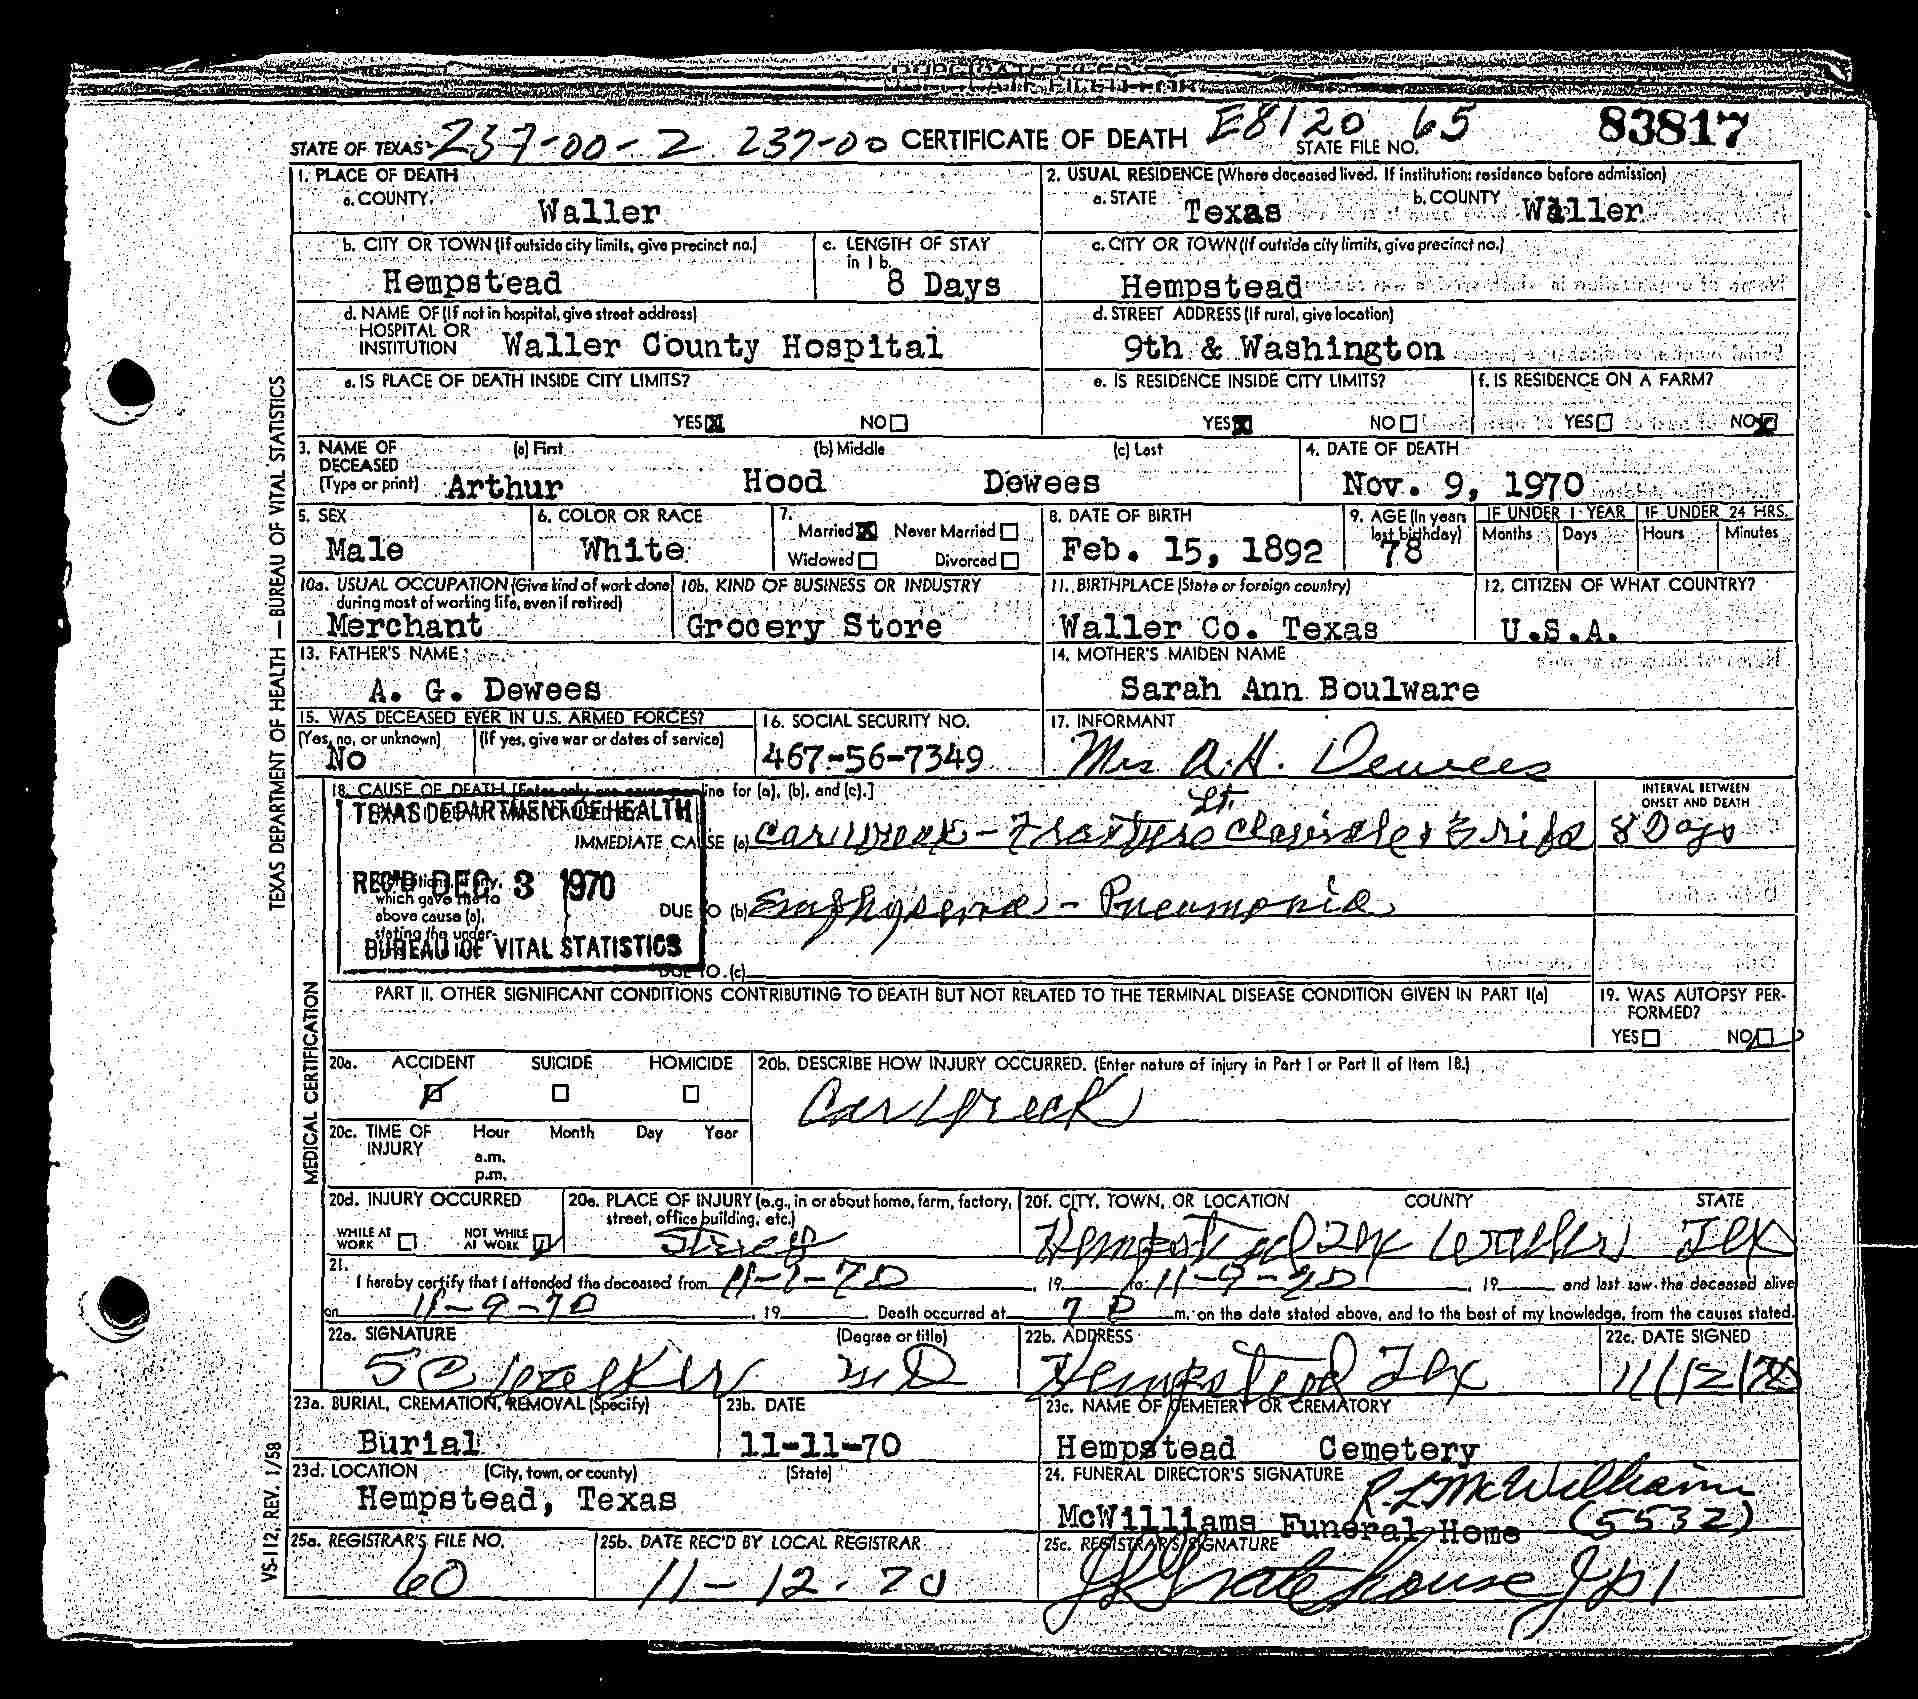 STATE OF TEXAS 237-00-2 237-00 CERTIFICATE OF DEATH E8120 65 STATE FILE NO. 83817
1. PLACE OF DEATH
a. COUNTY. Waller
2. USUAL RESIDENCE (Where deceased lived. If institution: residence before admission)
a. STATE Texas b. COUNTY Waller
b. CITY OR TOWN (If outside city limits, give precinct no.) Hempstead
c. LENGTH OF STAY in 1 b. 8 Days
c. CITY OR TOWN (If outside city limits, give precinct no.) Hempstead
d. NAME OF (If not in hospital, give street address) HOSPITAL OR INSTITUTION Waller County Hospital
d. STREET ADDRESS (If rural, give location) 9th & Washington
e. IS PLACE OF DEATH INSIDE CITY LIMITS? YES NO
e. IS RESIDENCE INSIDE CITY LIMITS? YES NO
f. IS RESIDENCE ON A FARM? YES NO
3. NAME OF DECEASED (Type or print) (a) First (b) Middle (c) Last
Arthur Hood Dewees
4. DATE OF DEATH
Nov. 9, 1970
5. SEX Male
6. COLOR OR RACE White
7. Married Never Married
Widowed Divorced
8. DATE OF BIRTH Feb. 15, 1892
9. AGE (In years last birthday) 78
IF UNDER 1 YEAR Months Days
IF UNDER 24 HRS. Hours Minutes
10a. USUAL OCCUPATION (Give kind of work done during most of working life, even if retired) Merchant
10b. KIND OF BUSINESS OR INDUSTRY Grocery Store
11. BIRTHPLACE (State or foreign country) Waller Co. Texas
12. CITIZEN OF WHAT COUNTRY? U.S.A.
13. FATHER'S NAME A. G. Dewees
14. MOTHER'S MAIDEN NAME Sarah Ann Boulware
15. WAS DECEASED EVER IN U.S. ARMED FORCES?
(Yes, no, or unknown) No (If yes, give war or dates of service)
16. SOCIAL SECURITY NO. 467-56-7349
17. INFORMANT Mrs A. H. Dewees
18. CAUSE OF DEATH [Enter only one cause per line for (a), (b), and (c).]
INTERVAL BETWEEN ONSET AND DEATH
TEXAS DEPARTMENT OF HEALTH
REC'D DEC 3 1970
BUREAU OF VITAL STATISTICS
IMMEDIATE CAUSE (a) Car Wreck - Fracture Lt. Clavicle & ribs 8 Days
which gave rise to above cause (a), stating the under-
DUE TO (b) Emphysema - Pneumonia
DUE TO (c)
PART II. OTHER SIGNIFICANT CONDITIONS CONTRIBUTING TO DEATH BUT NOT RELATED TO THE TERMINAL DISEASE CONDITION GIVEN IN PART I(a)
19. WAS AUTOPSY PERFORMED?
YES NO
20a. ACCIDENT SUICIDE HOMICIDE
20b. DESCRIBE HOW INJURY OCCURRED. (Enter nature of injury in Part I or Part II of Item 18.)
Car Wreck
20c. TIME OF INJURY Hour Month Day Year
a.m.
p.m.
20d. INJURY OCCURRED
WHILE AT WORK NOT WHILE AT WORK
20e. PLACE OF INJURY (e.g., in or about home, farm, factory, street, office building, etc.)
Street
20f. CITY, TOWN, OR LOCATION COUNTY STATE
Hempstead Tex Waller Tex
21. I hereby certify that I attended the deceased from 11-1-70, 19 to 11-9-70, 19 and last saw the deceased alive
on 11-9-70, 19 Death occurred at 7 P m. on the date stated above, and to the best of my knowledge, from the causes stated.
22a. SIGNATURE (Degree or title)
S C Walker MD
22b. ADDRESS
Hempstead Tex
22c. DATE SIGNED
11/12/70
23a. BURIAL, CREMATION, REMOVAL (Specify) Burial
23b. DATE 11-11-70
23c. NAME OF CEMETERY OR CREMATORY Hempstead Cemetery
23d. LOCATION (City, town, or county) (State)
Hempstead, Texas
24. FUNERAL DIRECTOR'S SIGNATURE R. L. McWilliams
McWilliams Funeral Home (5532)
25a. REGISTRAR'S FILE NO. 60
25b. DATE REC'D BY LOCAL REGISTRAR 11-12-70
25c. REGISTRAR'S SIGNATURE
TEXAS DEPARTMENT OF HEALTH — BUREAU OF VITAL STATISTICS
MEDICAL CERTIFICATION
VS-112, REV. 1/58